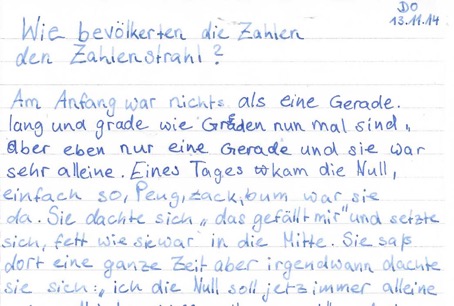 DO
13.11.14
Wie bevölkerten die Zahlen
den Zahlenstrahl?
Am Anfang war nichts als eine Gerade.
lang und grade wie Graden nun mal sind,
aber eben nur eine Gerade und sie war
sehr alleine. Eines Tages kam die Null,
einfach so, Peng, zack, bum war sie
da. Sie dachte sich „das gefällt mir" und setzte
sich, fett wie sie war in die Mitte. Sie saß
dort eine ganze Zeit aber irgendwann dachte
sie sich: „ich die Null soll jetz immer alleine